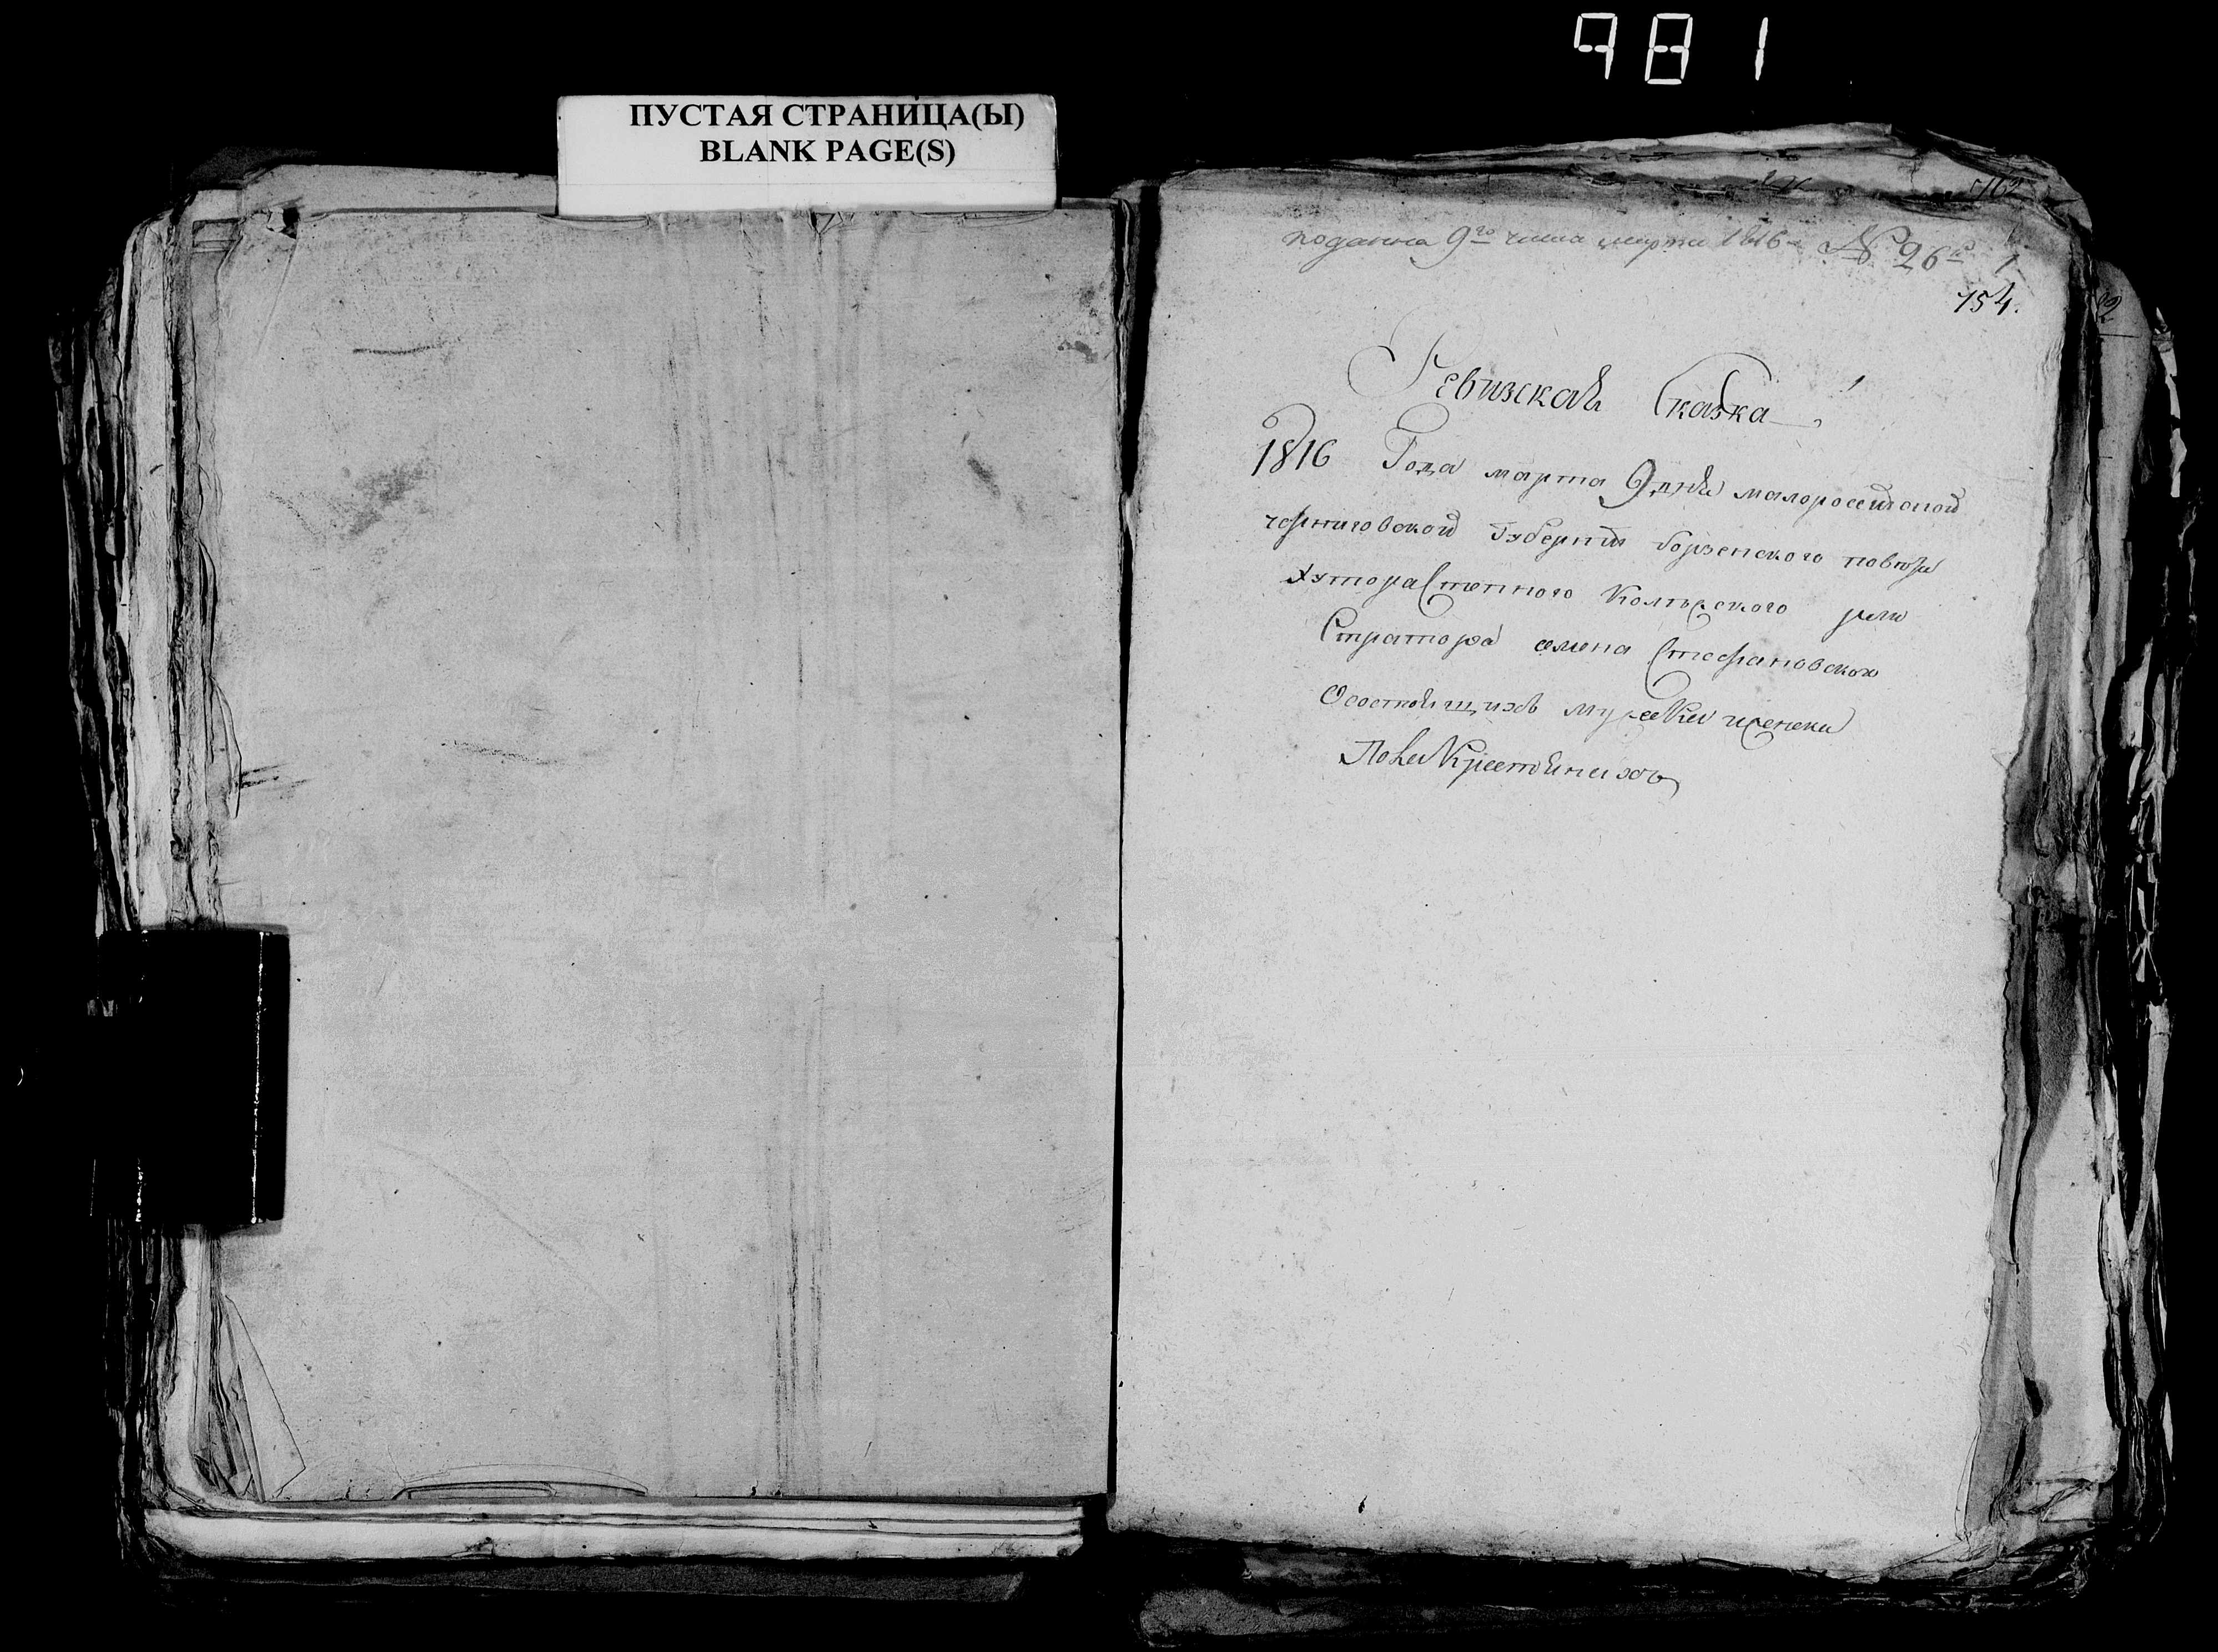 981
ПУСТАЯ СТРАНИЦА(Ы)
BLANK PAGE(S)
поданна 9го числа марта 1816 № 26й
154.
Ревизская Сказка
1816 Года марта 9 дня малоросейской
черниговской Губернии борзенского повета
Хутора Степного Колежского реги
Стратора семена Стефановского
Осостоящихъ мужеска иженска
Пола Крестянахъ